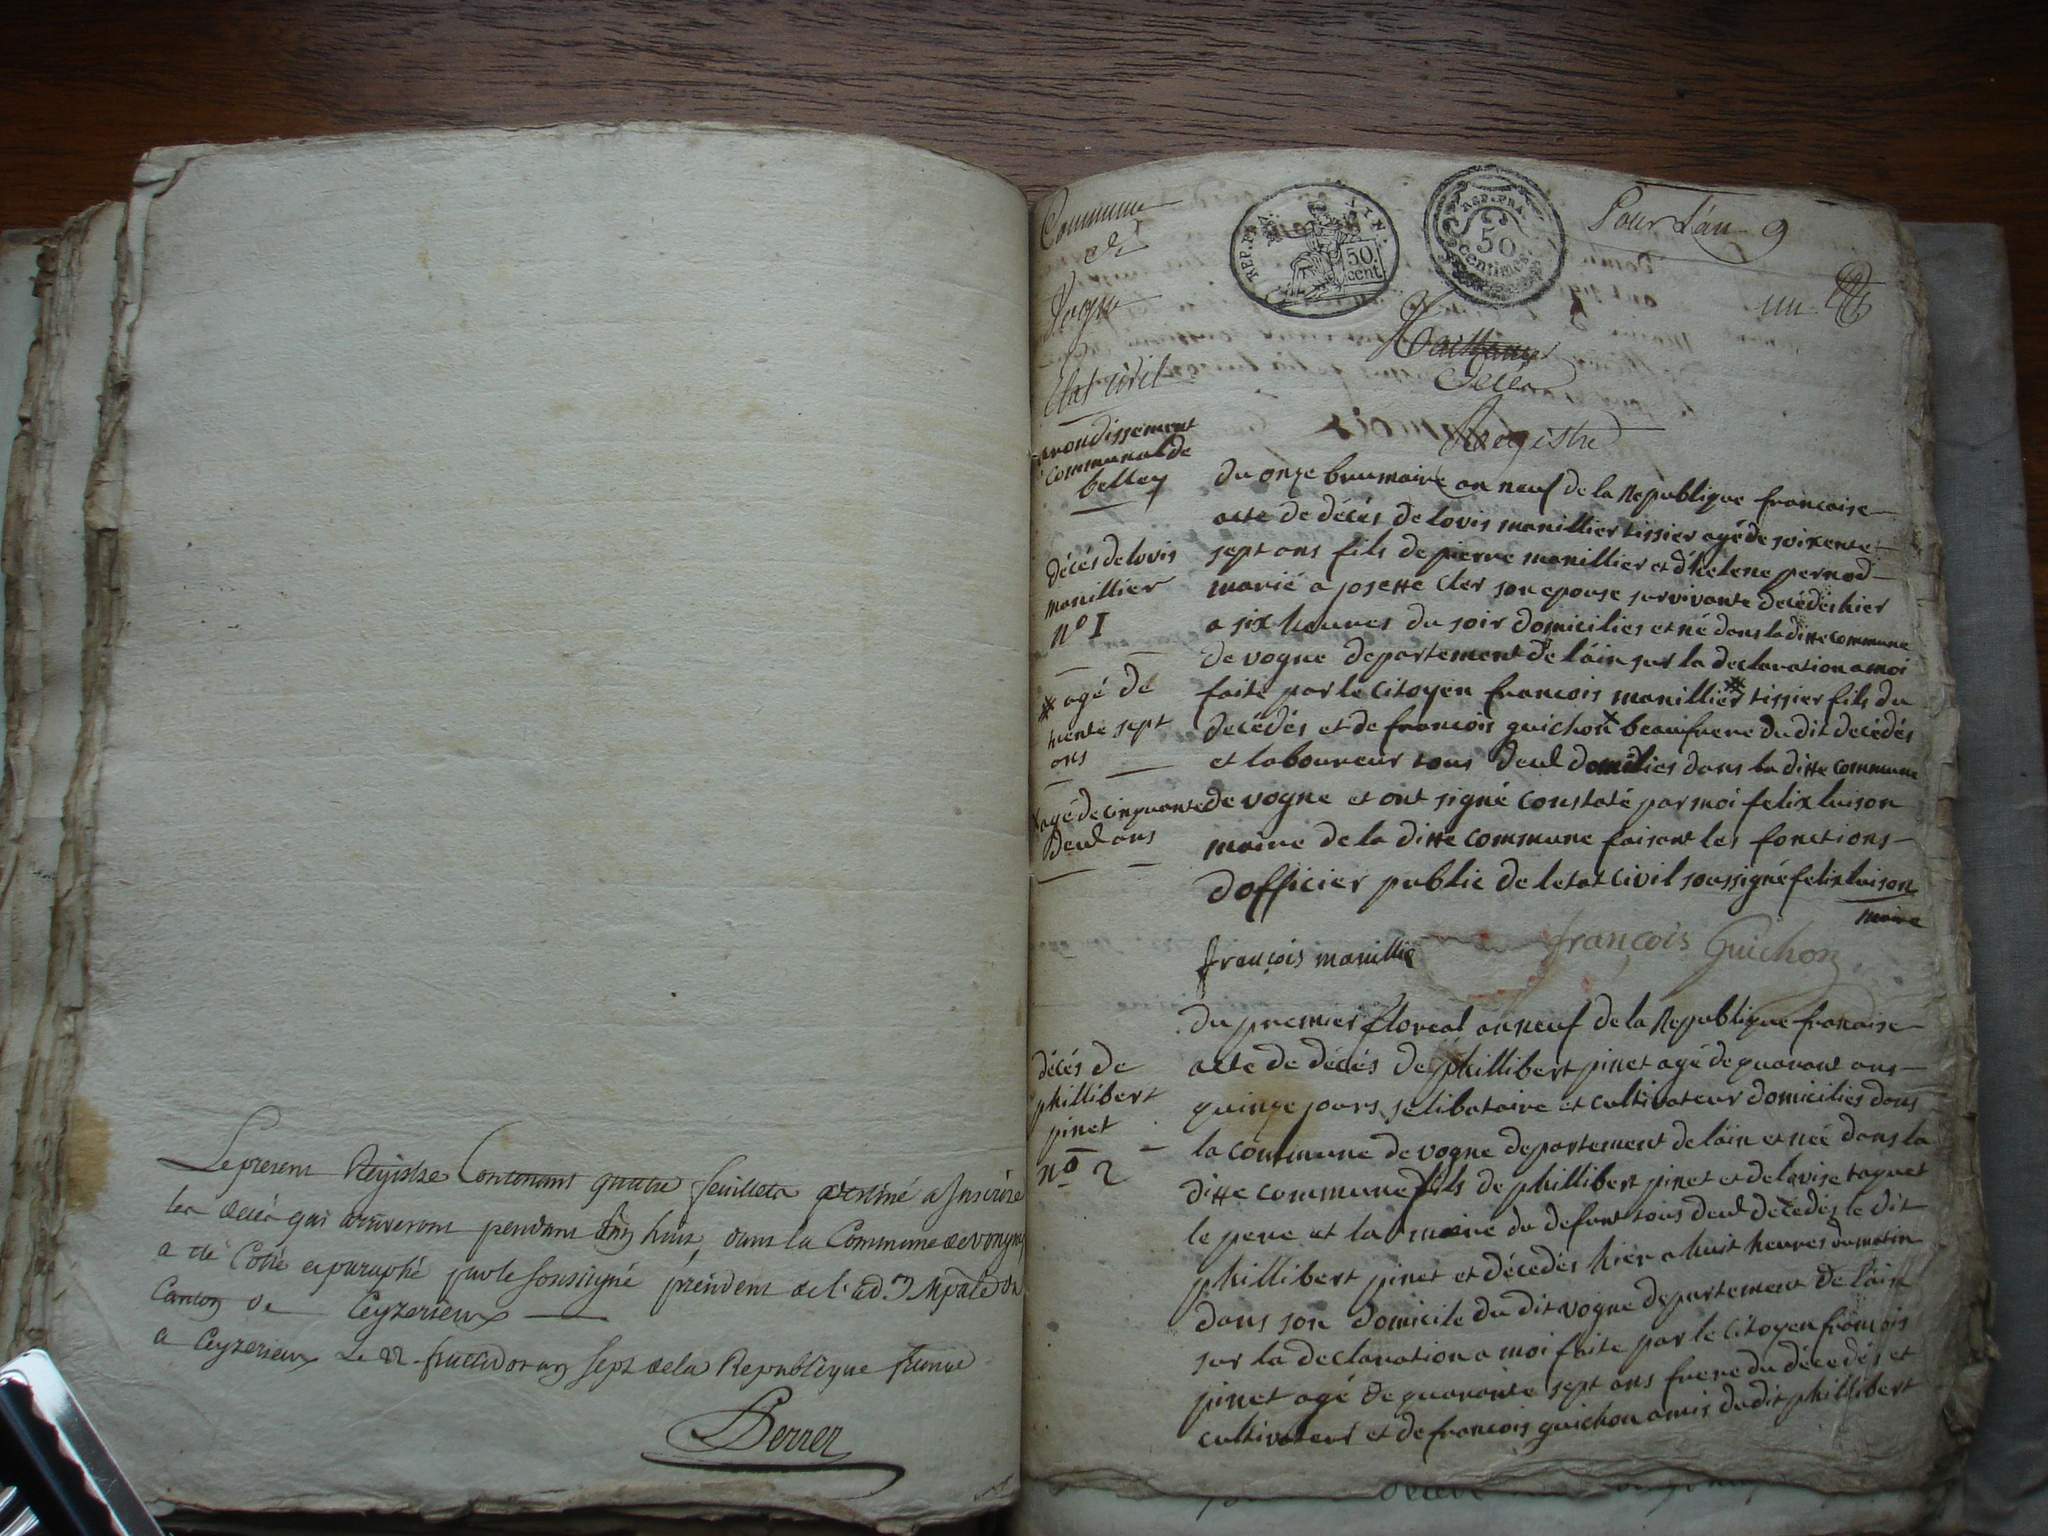 Le present Registre Contenant quatre feuillets destiné a Inscrire
les décès qui arriveront pendant l'an huit, dans la Commune de vongnes
a été Cotté et paraphé par le soussigné président de l'ad.on Mpale du
Canton de Ceyzerieux
a Ceyzerieux Le 22 fructidor an sept de la Republique
Perrer
Commune
de
Vogne
Etat civil
arondissement
communal de
belley
REP. FRA.
50.
cent.
REP. FRA.
50
centimes
Pour L'an 9
un
décés
Registre
du onze brumaire an neuf de la Republique francaise
acte de décés de lovis manillier tissier agé de soixente
sept ans fils de pierre manillier et d'helene pernod
marié a josette cler son epouse survivante decédés hier
a six heures du soir domiciliés et né dans la ditte commune
de vogne departement de l'ain sur la declaration a moi
faite par le citoyen francois manillier # tissier fils du
decédés et de francois guichon x beaufrere du dit decédés
et laboureur tous deux domiliés dans la ditte commune
de vogne et ont signé constaté par moi felix luison
maire de la ditte commune faisant les fonctions
dofficier public de letat civil soussigné felix luison
maire
décés de lovis
manillier
nº I
# agé de
trente sept
ans
x agé de cinquante
deux ans
françois manillie
françois Guichon
du premier floreal an neuf de la Republique francaise
acte de décés de phillibert pinet agé de quarant ans
quinze jours selibataire et cultivateur domiciliés dans
la commune de vogne departement de l'ain et née dans la
ditte commune fils de phillibert pinet et de lovise taquet
le pere et la maire du defunt tous deux decédés le dit
phillibert pinet et décédés hier a huit heures du matin
dans son domicile du dit vogne departement de l'ain
sur la declaration a moi faite par le citoyen francois
pinet agé de quarante sept ans frere du décedés et
cultivateur et de francois guichon amis dudit phillibert
décés de
phillibert
pinet
nº 2